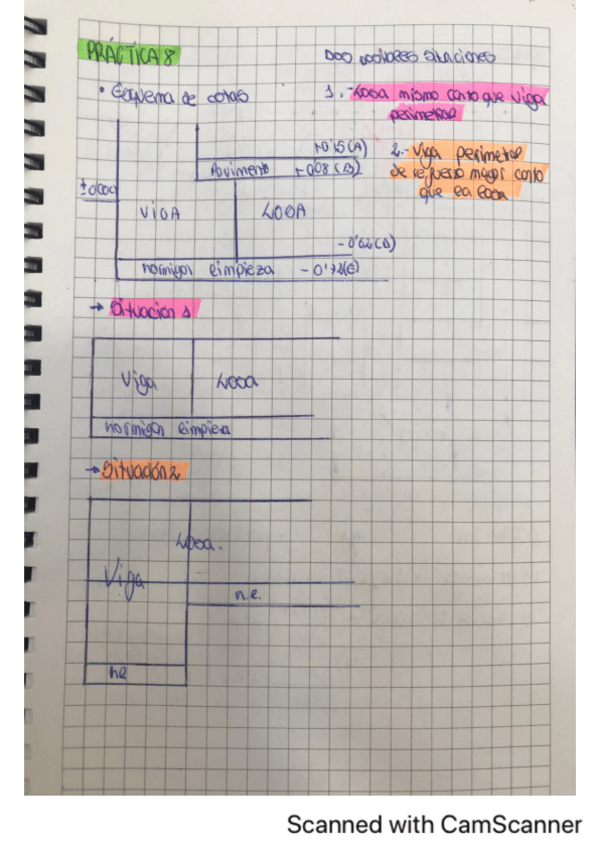 PRÁCTICA 8
Dos posibles situaciones
• Esquema de cotas
1.- Losa mismo canto que viga
perimetral
2.- Viga perimetral
de refuerzo mayor canto
que la losa
+0'15(A)
Pavimento +0'08(B)
±0'00
VIGA
LOSA
hormigon limpieza
→ Situación 1
Viga
Losa
hormigon limpieza
→ Situación 2
Losa.
Viga
h.l.
hl
Scanned with CamScanner